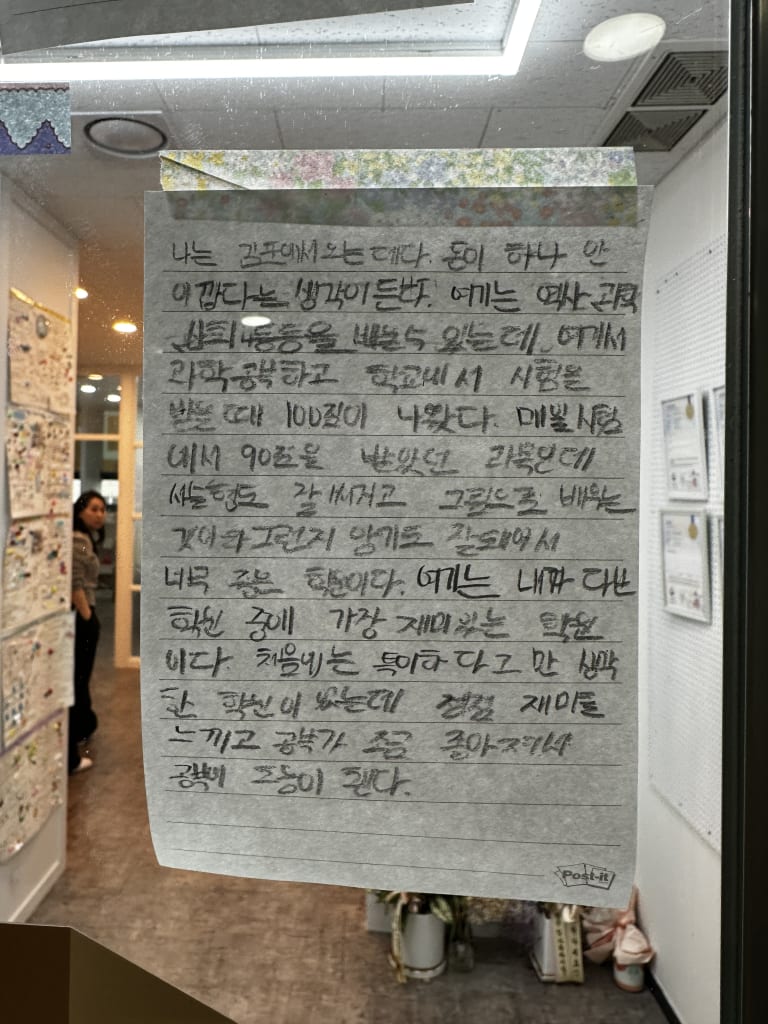 나는 김포에서 오는데다. 돈이 하나 안
아깝다는 생각이 든다. 여기는 역사, 과학
사회 등등을 배울수 있는데, 여기서
과학공부하고 학교에서 시험을
봤을때 100점이 나왔다. 매일 시험
에서 90점을 받았던 과목인데
서술형도 잘 써지고 그림으로 배우는
것이라 그런지 암기도 잘되어서
너무 좋은 학원이다. 여기는 내가 다닌
학원 중에 가장 재미있는 학원
이다. 처음에는 특이하다고 만 생각
한 학원이 었는데 점점 재미를
느끼고 공부가 조금 좋아져서
공부에 도움이 된다.
Post-it